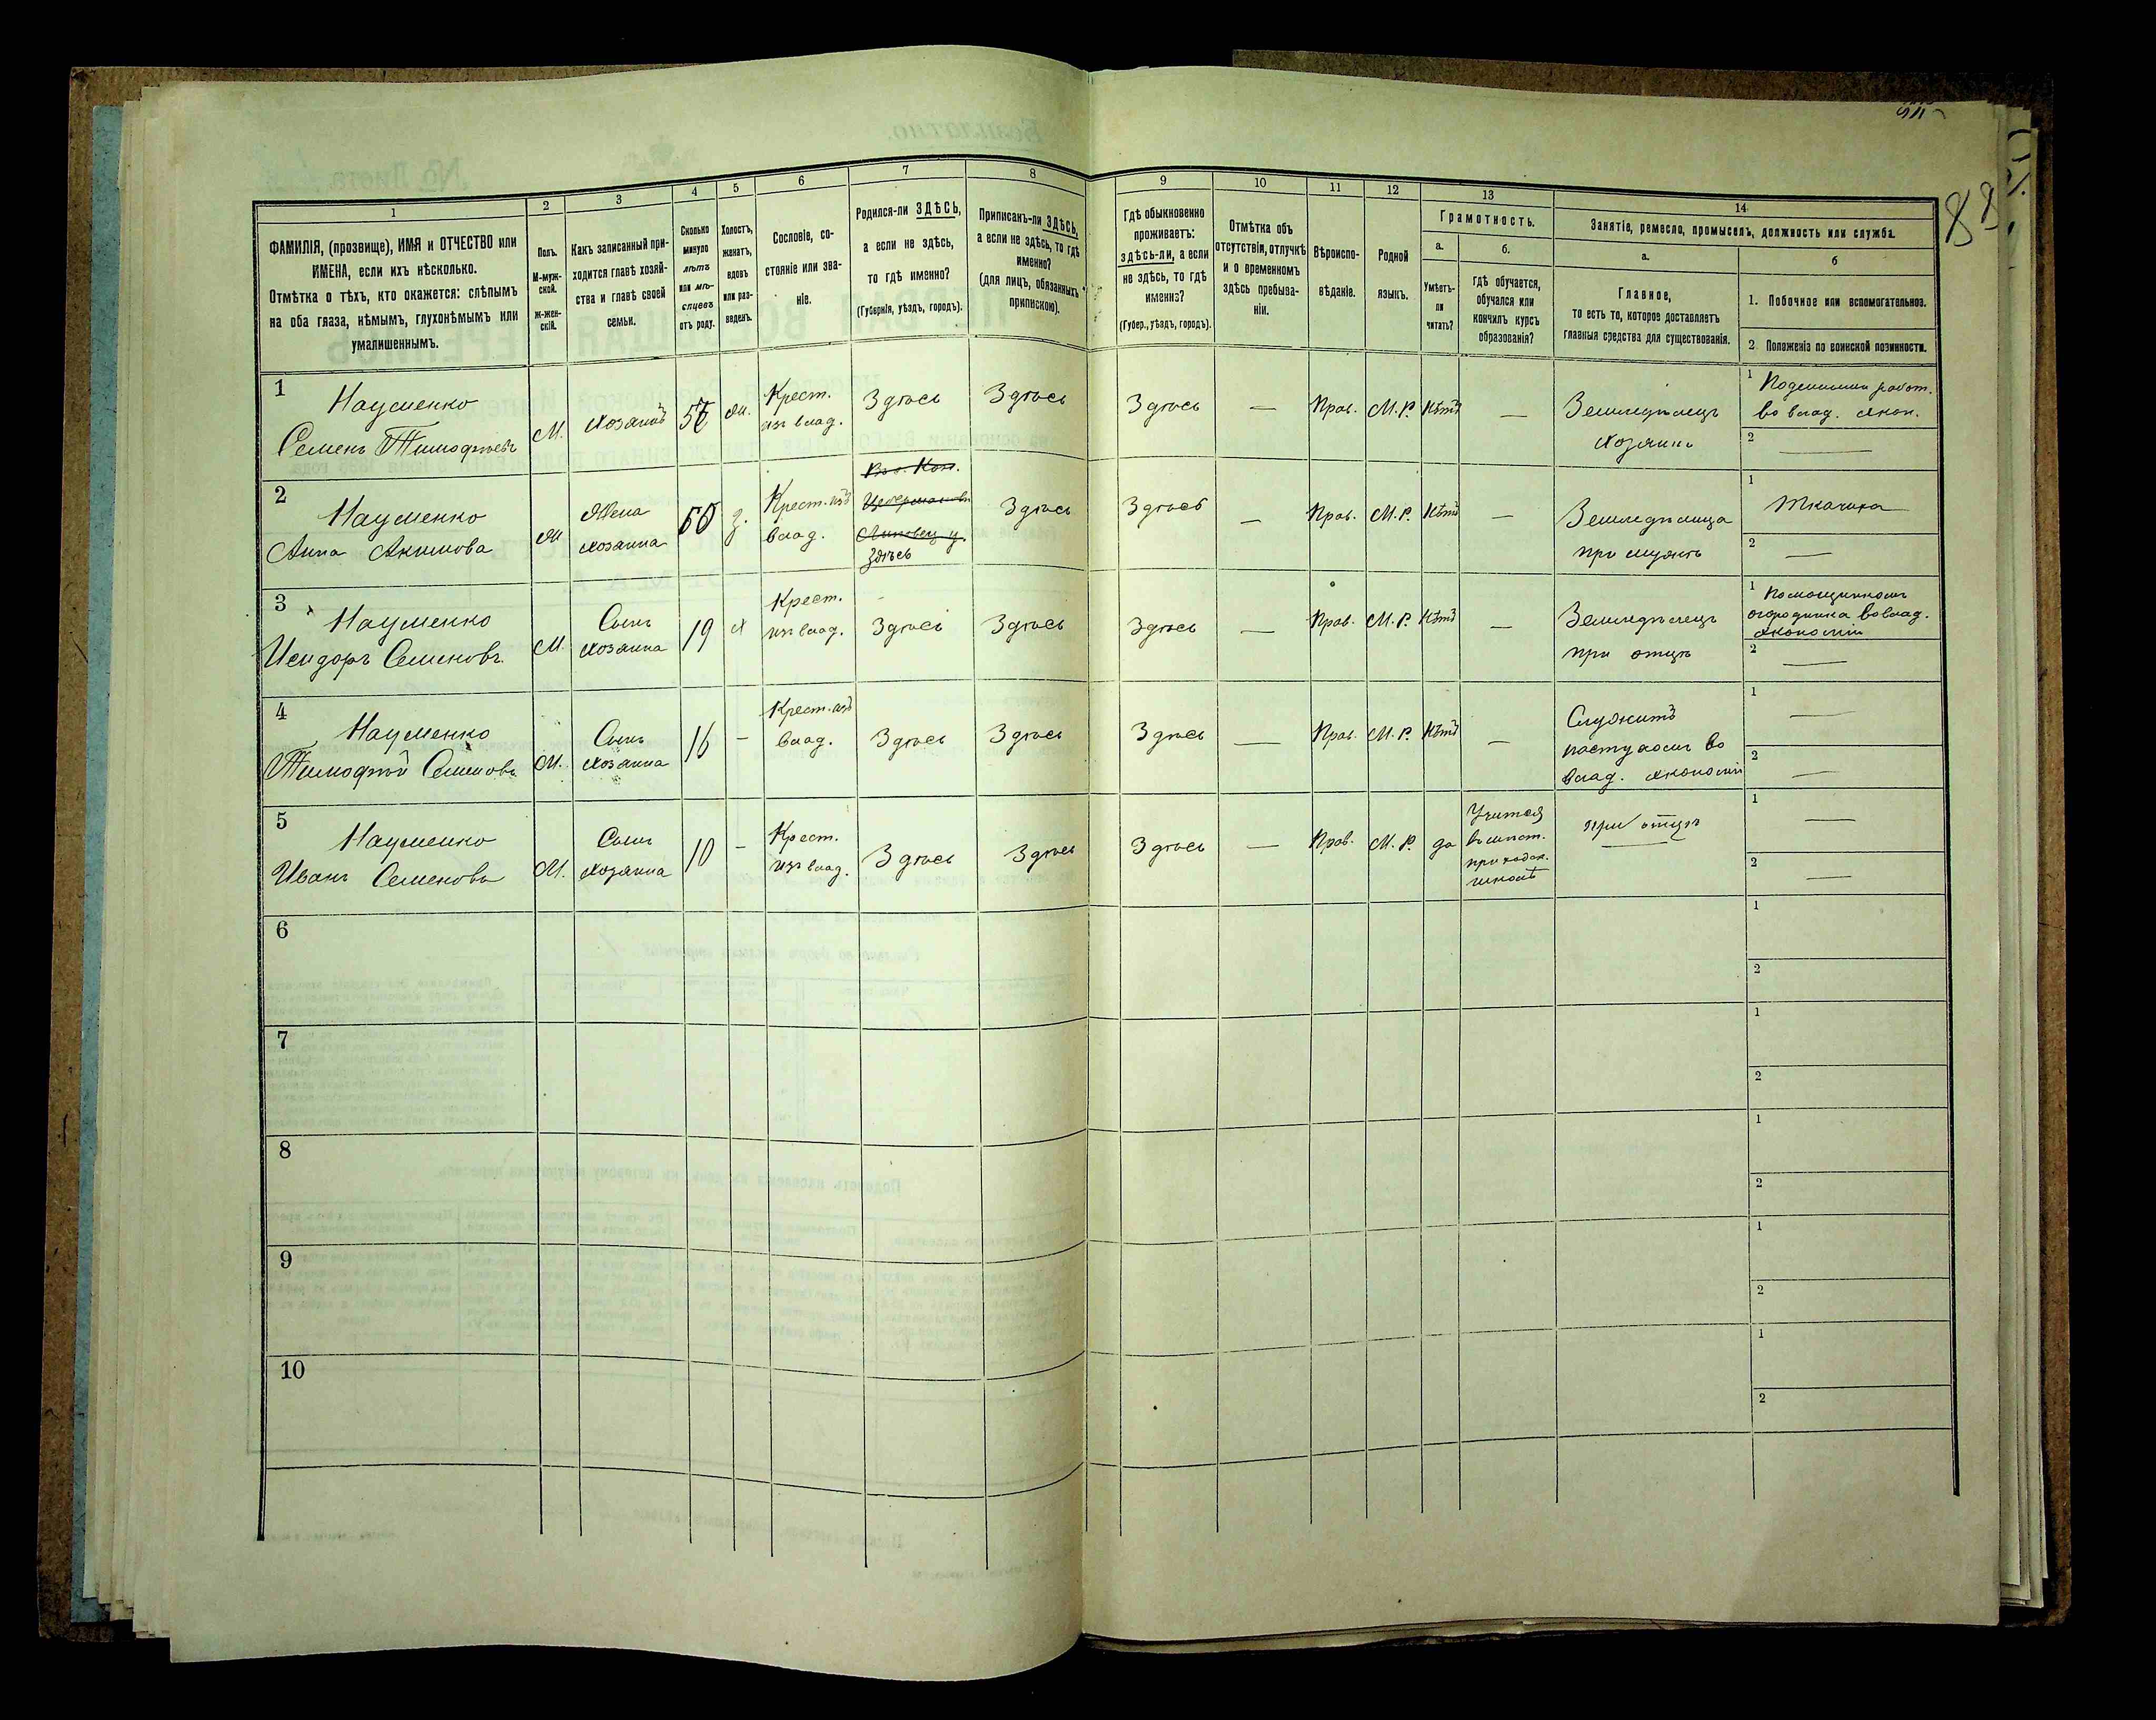 88
1
2
3
4
5
6
7
8
9
10
11
12
13
14
ФАМИЛІЯ, (прозвище), ИМЯ и ОТЧЕСТВО или
ИМЕНА, если ихъ нѣсколько.
Отмѣтка о тѣхъ, кто окажется: слѣпымъ
на оба глаза, нѣмымъ, глухонѣмымъ или
умалишеннымъ.
Полъ.
М-муж-
ской.
Ж-жен-
скій.
Какъ записанный при-
ходится главѣ хозяй-
ства и главѣ своей
семьи.
Сколько
минуло
лѣтъ
или мѣ-
сяцевъ
отъ роду.
Холостъ,
женатъ,
вдовъ
или раз-
веденъ.
Сословіе, со-
стояніе или зва-
ніе.
Родился-ли ЗДѢСЬ,
а если не здѣсь,
то гдѣ именно?
(Губернія, уѣздъ, городъ).
Приписанъ-ли ЗДѢСЬ,
а если не здѣсь, то гдѣ
именно?
(для лицъ, обязанныхъ
припискою).
Гдѣ обыкновенно
проживаетъ:
здѣсь-ли, а если
не здѣсь, то гдѣ
именно?
(Губер., уѣздъ, городъ).
Отмѣтка объ
отсутствіи, отлучкѣ
и о временномъ
здѣсь пребыва-
ніи.
Вѣроиспо-
вѣданіе.
Родной
языкъ.
Грамотность.
а.
Умѣетъ-
ли
читать?
б.
Гдѣ обучается,
обучался или
кончилъ курсъ
образованія?
Занятіе, ремесло, промыселъ, должность или служба.
а.
Главное,
то есть то, которое доставляетъ
главныя средства для существованія.
б
1. Побочное или вспомогательное.
2. Положеніе по воинской повинности.
1
Науменко
Семенъ Тимофѣевъ
М.
Хозяинъ
ж.
Крест.
изъ влад.
Здѣсь
Здѣсь
Здѣсь
—
Прав.
М. Р.
Нѣтъ
—
Земледѣлецъ
хозяинъ
1 Поденный работ.
во влад. экон.
2 —
2
Науменко
Анна Акимова
Ж
Жена
хозяина
50
з.
Крест. изъ
влад.
Здѣсь
Здѣсь
Здѣсь
—
Прав.
М. Р.
Нѣтъ
—
Земледѣлица
при мужѣ
1 Ткачиха
2 —
3
Науменко
Исидоръ Семеновъ
М.
Сынъ
хозяина
19
х
Крест.
изъ влад.
Здѣсь
Здѣсь
Здѣсь
—
Прав.
М. Р.
Нѣтъ
—
Земледѣлецъ
при отцѣ
1 Помощникомъ
огородника во влад.
экономіи
2 —
4
Науменко
Тимофѣй Семеновъ
М.
Сынъ
хозяина
16
—
Крест. изъ
влад.
Здѣсь
Здѣсь
Здѣсь
—
Прав.
М. Р.
Нѣтъ
—
Служитъ
пастухомъ во
влад. экономіи
1 —
2 —
5
Науменко
Иванъ Семеновъ
М.
Сынъ
хозяина
10
—
Крест.
изъ влад.
Здѣсь
Здѣсь
Здѣсь
—
Прав.
М. Р.
да
Учится
въ мѣст.
приходск.
школѣ
при отцѣ
1 —
2 —
6
1
2
7
1
2
8
1
2
9
1
2
10
1
2